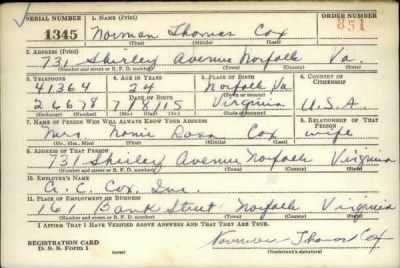 SERIAL NUMBER 1. NAME (Print) ORDER NUMBER
1345 Norman Thomas Cox 851
(First) (Middle) (Last)
2. ADDRESS (Print)
731 Shirley Avenue Norfolk Va.
(Number and street or R. F. D. number) (Town) (County) (State)
3. TELEPHONE 4. AGE IN YEARS 5. PLACE OF BIRTH 6. COUNTRY OF CITIZENSHIP
41364 24 Norfolk Va.
DATE OF BIRTH (Town or county)
26678 7/8/15 Virginia U.S.A.
(Mo.) (Day) (Yr.) (State or country)
7. NAME OF PERSON WHO WILL ALWAYS KNOW YOUR ADDRESS 8. RELATIONSHIP OF THAT PERSON
Mrs. Rosa Cox wife
(Mr., Mrs., Miss) (First) (Middle) (Last)
9. ADDRESS OF THAT PERSON
731 Shirley Avenue Norfolk Virginia
(Number and street or R. F. D. number) (Town) (County) (State)
10. EMPLOYER'S NAME
C. Cox, Inc.
11. PLACE OF EMPLOYMENT OR BUSINESS
161 Bank Street Norfolk Virginia
(Number and street or R. F. D. number) (Town) (County) (State)
I AFFIRM THAT I HAVE VERIFIED ABOVE ANSWERS AND THAT THEY ARE TRUE.
REGISTRATION CARD Norman Thomas Cox
D. S. S. Form 1 (over) (Registrant's signature)